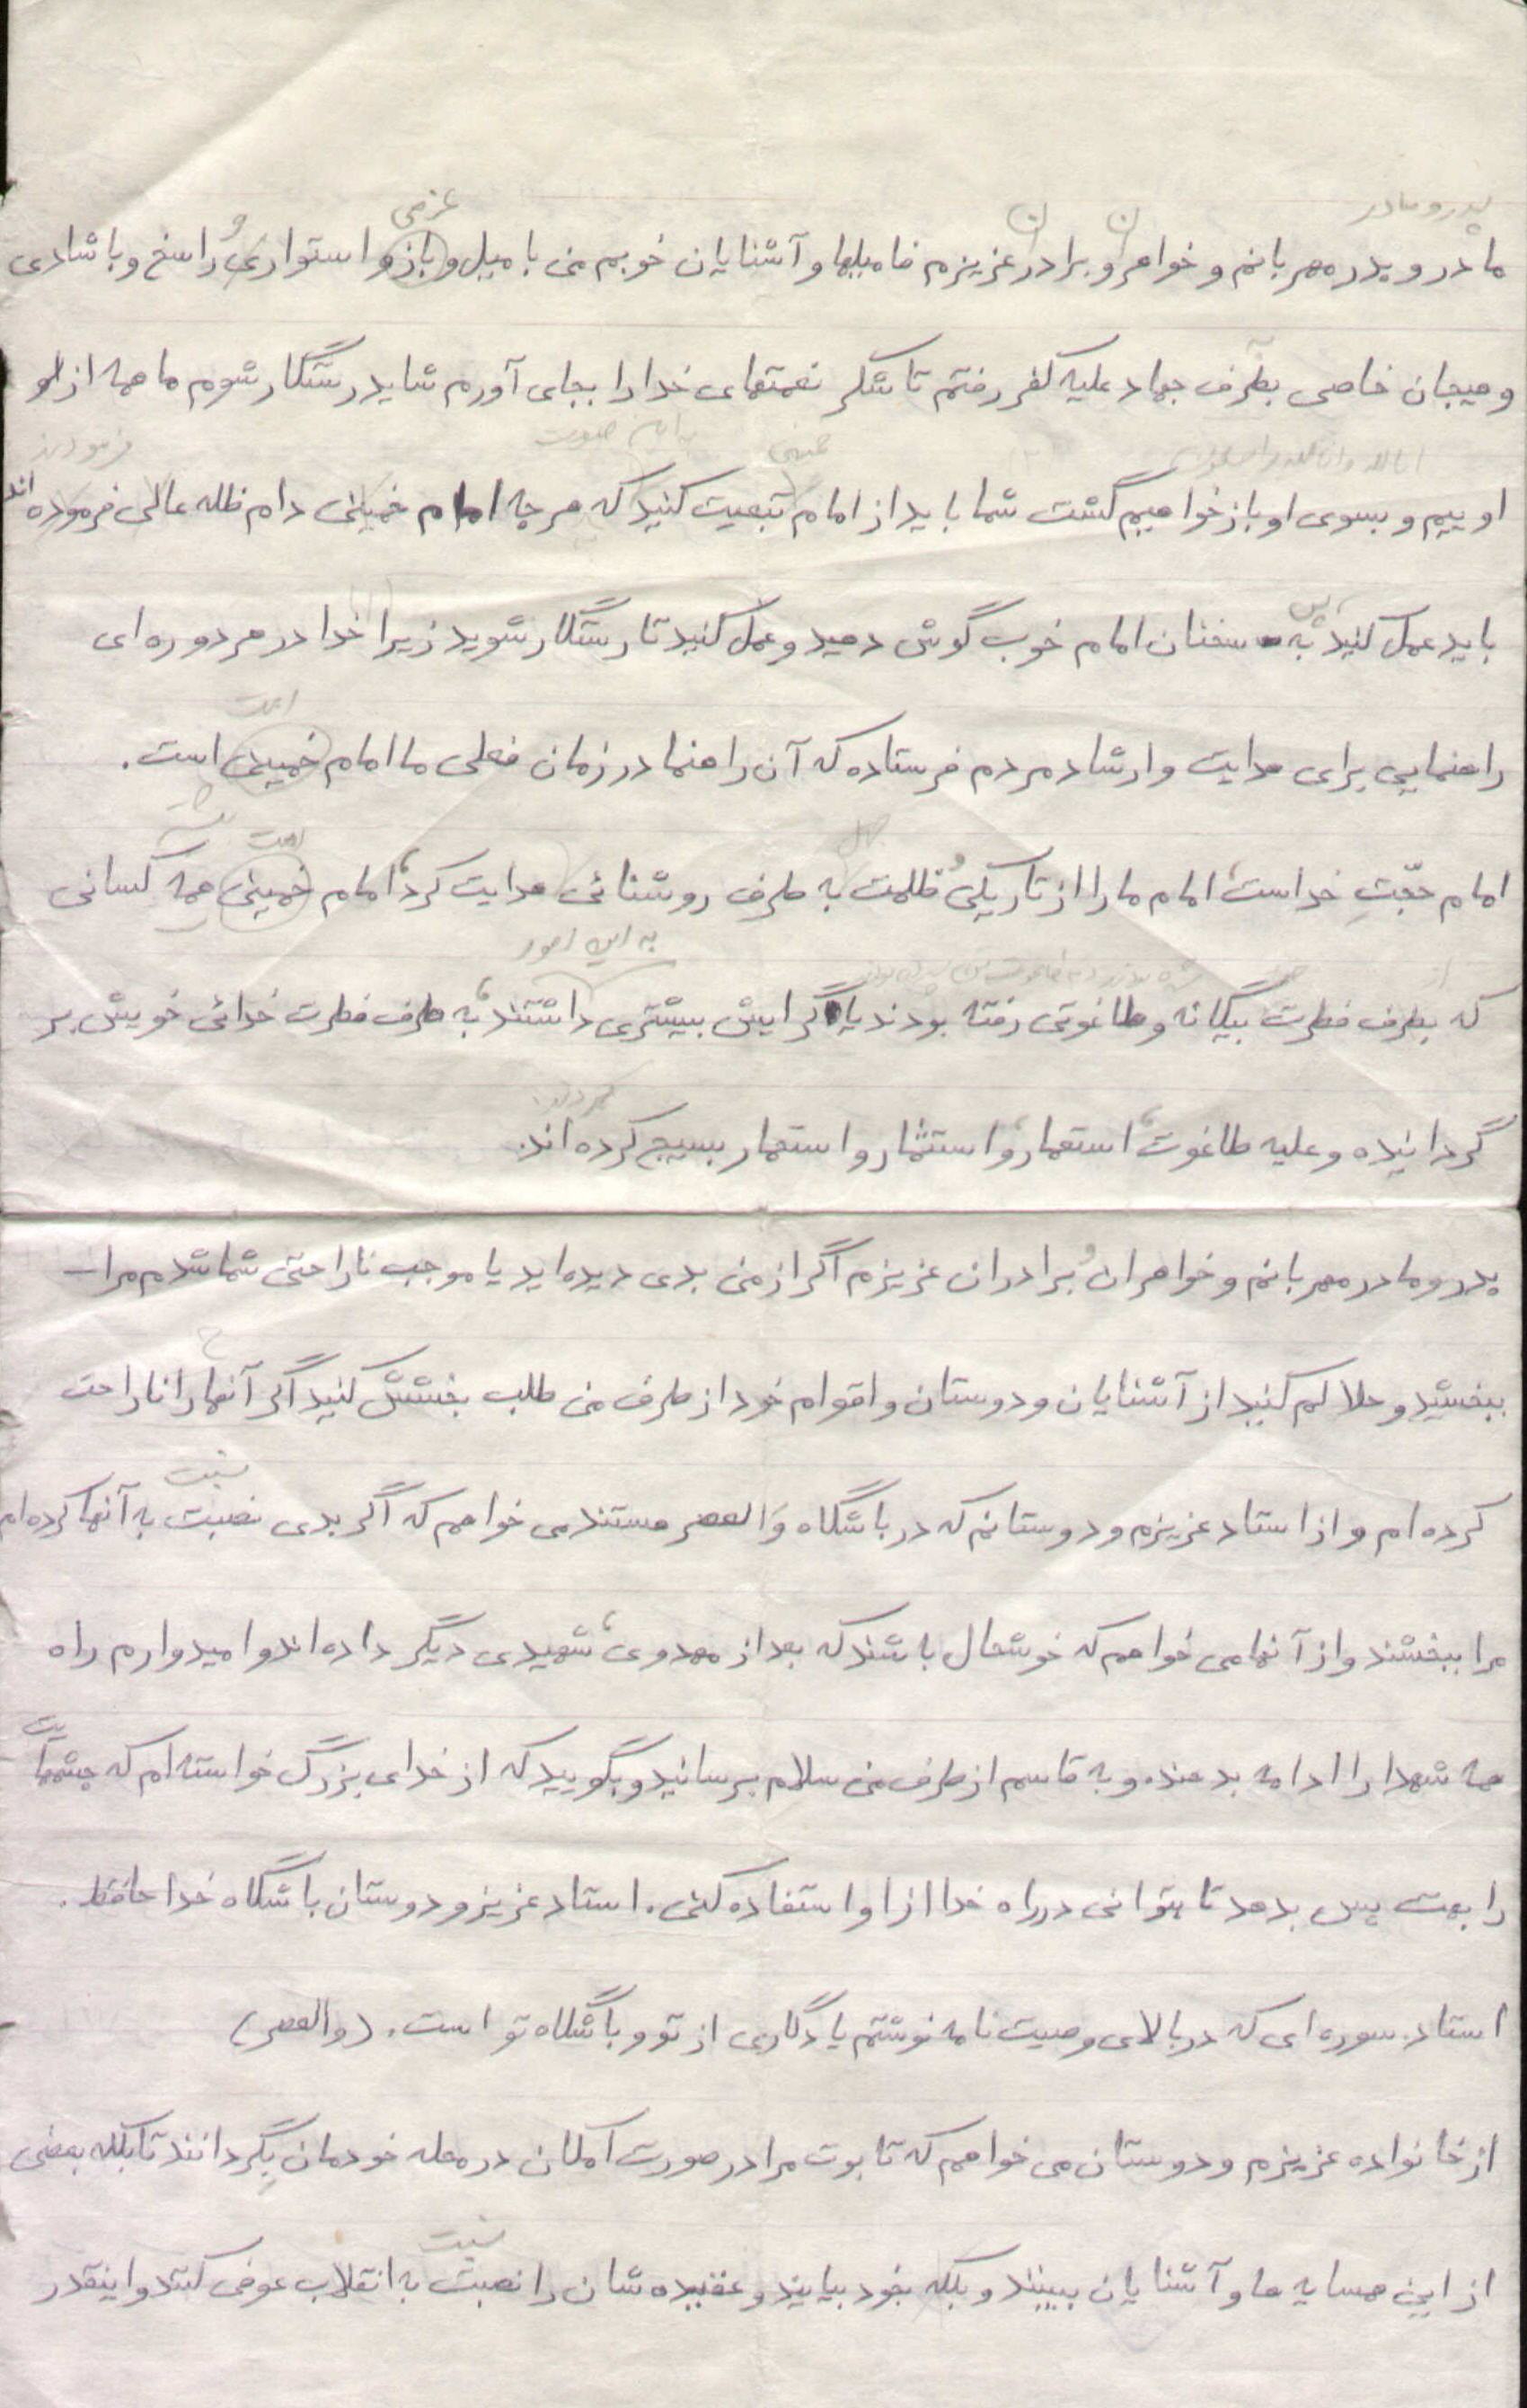 پدر و مادر
عزمی
مادر و پدر مهربانم و خواهر و برادر عزیزم فامیلها و آشنایان خوبم من با میل و باز و استواری و راسخ و با شادی
و هیجان خاصی بطرف جهاد علیه کفر رفتم تا شکر نعمتهای خدا را بجای آورم شاید رستگار شوم ما همه از او
انا لله و انا الیه راجعون
خمینی
فرمودند
اوییم و بسوی او باز خواهیم گشت شما باید از امام تبعیت کنید که هر چه امام خمینی دام ظله عالی فرموده اند
باید عمل کنید به سخنان امام خوب گوش دهید و عمل کنید تا رستگار شوید زیرا خدا در هر دوره ای
امت
راهنمایی برای هدایت و ارشاد مردم فرستاده که آن راهنما در زمان فعلی ما امام خمینی است.
امت
امام حجّتِ خداست امام ما را از تاریکی و ظلمت به طرف روشنائی هدایت کرد، امام خمینی همه کسانی
به این امور
که بطرف فطرت بیگانه و طاغوتی رفته بودند یا گرایش بیشتری داشتند، به طرف فطرت خدائی خویش بر
گردانیده و علیه طاغوت، استعمار و استثمار و استحمار بسیج کرده اند.
پدر و مادر مهربانم و خواهران و برادران عزیزم اگر از من بدی دیده اید یا موجب ناراحتی شما شدم مرا
ببخشید و حلالم کنید از آشنایان و دوستان و اقوام خود از طرف من طلب بخشش کنید اگر آنها را ناراحت
نسبت
کرده ام و از استاد عزیزم و دوستانم که در باشگاه وَالعصر هستند می خواهم که اگر بدی نصبت به آنها کرده ام
مرا ببخشند و از آنها می خواهم که خوشحال باشند که بعد از مهدوی، شهیدی دیگر داده اند و امیدوارم راه
همه شهدا را ادامه بدهند. و به قاسم از طرف من سلام برسانید و بگویید که از خدای بزرگ خواسته ام که چشمهایت
را بهت پس بدهد تا بتوانی در راه خدا از او استفاده کنی. استاد عزیز و دوستان باشگاه خدا حافظ.
استاد. سوره ای که در بالای وصیت نامه نوشتم یادگاری از تو و باشگاه تو است. (والعصر)
از خانواده عزیزم و دوستان می خواهم که تابوت مرا در صورت امکان در محله خودمان بِگردانند تا بلکه بعضی
نسبت
از این همسایه ها و آشنایان ببینند و بلکه بخود بیایند و عقیده شان را نصبت به انقلاب عوض کنند و اینقدر